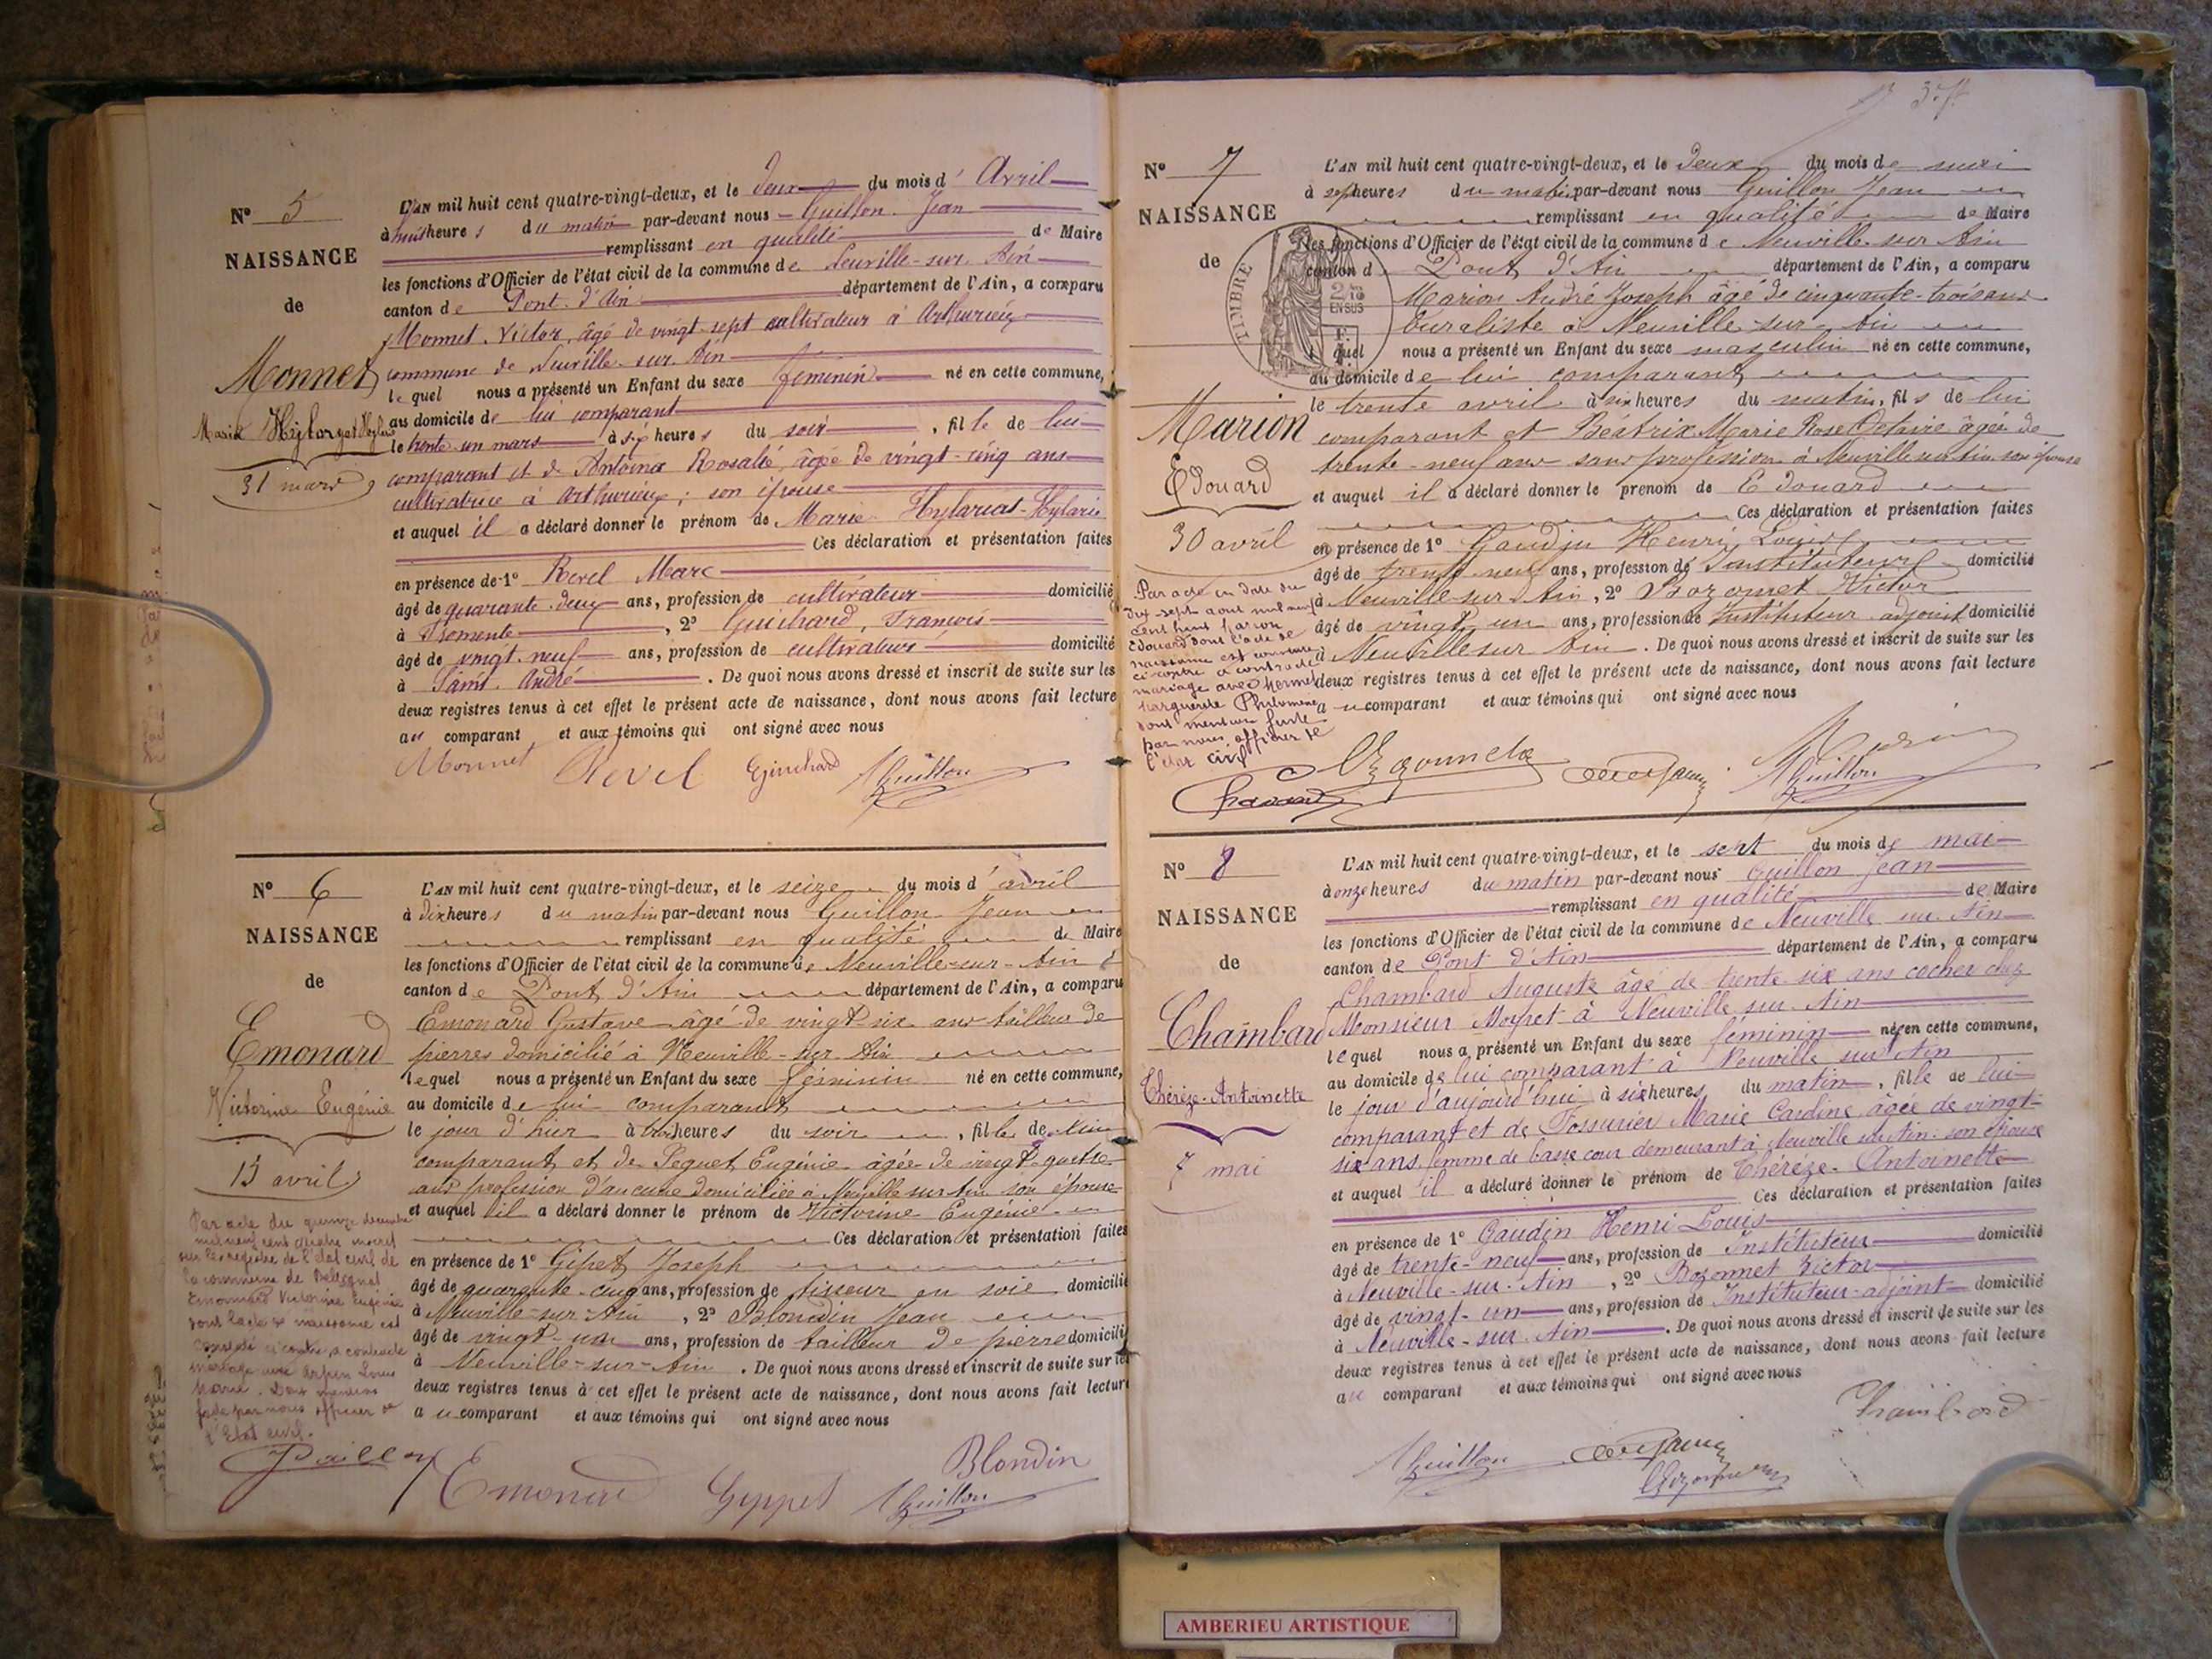 Nº 5
NAISSANCE
de
Monnet
31 mars
L'AN mil huit cent quatre-vingt-deux, et le deux du mois d' Avril
à huit heures du matin par-devant nous Guillon Jean
remplissant en qualité de Maire
les fonctions d'Officier de l'état civil de la commune de Neuville-sur-Ain
canton de Pont-d'Ain département de l'Ain, a comparu
Monnet Victor, âgé de vingt-sept cultivateur à
commune de Neuville-sur-Ain
lequel nous a présenté un Enfant du sexe féminin né en cette commune,
au domicile de lui comparant
le trente-un mars à six heures du soir, fille de lui
comparant et de Antoinat Rosalie, âgée de vingt-cinq ans
cultivatrice à ; son épouse
et auquel il a déclaré donner le prénom de Marie
Ces déclaration et présentation faites
en présence de 1º Revel Marc
âgé de quarante-deux ans, profession de cultivateur domicilié
à , 2º Guichard, François
âgé de vingt-neuf ans, profession de cultivateur domicilié
à Saint-André. De quoi nous avons dressé et inscrit de suite sur les
deux registres tenus à cet effet le présent acte de naissance, dont nous avons fait lecture
au comparant et aux témoins qui ont signé avec nous
Monnet Revel Guichard Guillon
Nº 6
NAISSANCE
de
Emonard
Victorine Eugénie
15 avril
L'AN mil huit cent quatre-vingt-deux, et le seize du mois d' avril
à dix heures du matin par-devant nous Guillon Jean
remplissant en qualité de Maire
les fonctions d'Officier de l'état civil de la commune de Neuville-sur-Ain
canton de Pont d'Ain département de l'Ain, a comparu
Emonard Gustave âgé de vingt-six ans tailleur de
pierres domicilié à Neuville-sur-Ain
lequel nous a présenté un Enfant du sexe féminin né en cette commune,
au domicile de lui comparant
le jour d'hier à heures du soir, fille de lui
comparant et de Peguet Eugénie âgée de vingt-quatre
ans profession d'aucune domiciliée à Neuville sur Ain son épouse
et auquel il a déclaré donner le prénom de Victorine Eugénie
Ces déclaration et présentation faites
en présence de 1º Gipet Joseph
âgé de quarante-cinq ans, profession de tisseur en soie domicilié
à Neuville-sur-Ain, 2º Blondin Jean
âgé de vingt-un ans, profession de tailleur de pierre domicilié
à Neuville-sur-Ain. De quoi nous avons dressé et inscrit de suite sur les
deux registres tenus à cet effet le présent acte de naissance, dont nous avons fait lecture
au comparant et aux témoins qui ont signé avec nous
Par acte du quinze décembre
mil neuf cent quatre inscrit
sur les registre de l'état civil de
la commune de
Emonard Victorine Eugénie
dont l'acte de naissance est
ci contre a contracté
mariage avec Louis
Marie. Dont mention
faite par nous officier de
l'Etat civil.
Emonard Gyppet Blondin Guillon
Nº 7
NAISSANCE
de
Marion
Edouard
30 avril
TIMBRE
2/10
EN SUS
L'AN mil huit cent quatre-vingt-deux, et le deux du mois de mai
à sept heures du matin par-devant nous Guillon Jean
remplissant en qualité de Maire
les fonctions d'Officier de l'état civil de la commune de Neuville-sur-Ain
canton d Pont d'Ain département de l'Ain, a comparu
Marion André Joseph âgé de cinquante-trois ans
buraliste à Neuville-sur-Ain
l quel nous a présenté un Enfant du sexe masculin né en cette commune,
au domicile de lui comparant
le trente avril à six heures du matin, fils de lui
comparant et Béatrix Marie Rose Octavie âgée de
trente-neuf ans sans profession à Neuville sur Ain son épouse
et auquel il a déclaré donner le prenom de Edouard
Ces déclaration et présentation faites
en présence de 1º Gaudin Henri Louis
âgé de trente-neuf ans, profession de Instituteur domicilié
à Neuville-sur-Ain, 2º Bozonnet Victor
âgé de vingt-un ans, profession de Instituteur adjoint domicilié
à Neuville sur Ain. De quoi nous avons dressé et inscrit de suite sur les
deux registres tenus à cet effet le présent acte de naissance, dont nous avons fait lecture
au comparant et aux témoins qui ont signé avec nous
Par acte en date du
dix-sept août mil neuf
cent huit Marion
Edouard dont l'acte de
naissance est
ci-contre a contracté
mariage avec
Marguerite Philomène
dont mention faite
par nous officier de
l'état civil
Bozonnet Marion Guillon
Nº 8
NAISSANCE
de
Chambard
Thérèze-Antoinette
7 mai
L'AN mil huit cent quatre-vingt-deux, et le sept du mois de mai
à onze heures du matin par-devant nous Guillon Jean
remplissant en qualité de Maire
les fonctions d'Officier de l'état civil de la commune de Neuville sur Ain
canton de Pont d'Ain département de l'Ain, a comparu
Chambard Auguste âgé de trente-six ans cocher chez
Monsieur à Neuville sur Ain
lequel nous a présenté un Enfant du sexe féminin né en cette commune,
au domicile de lui comparant à Neuville sur Ain
le jour d'aujourd'hui à six heures du matin, fille de lui
comparant et de Marie âgée de vingt-
six ans femme de basse cour demeurant à Neuville sur Ain son épouse
et auquel il a déclaré donner le prénom de Thérèze-Antoinette
Ces déclaration et présentation faites
en présence de 1º Gaudin Henri Louis
âgé de trente-neuf ans, profession de Instituteur domicilié
à Neuville-sur-Ain, 2º Bozonnet Victor
âgé de vingt-un ans, profession de Instituteur-adjoint domicilié
à Neuville-sur-Ain. De quoi nous avons dressé et inscrit de suite sur les
deux registres tenus à cet effet le présent acte de naissance, dont nous avons fait lecture
au comparant et aux témoins qui ont signé avec nous
Chambard
Guillon
Bozonnet
AMBERIEU ARTISTIQUE